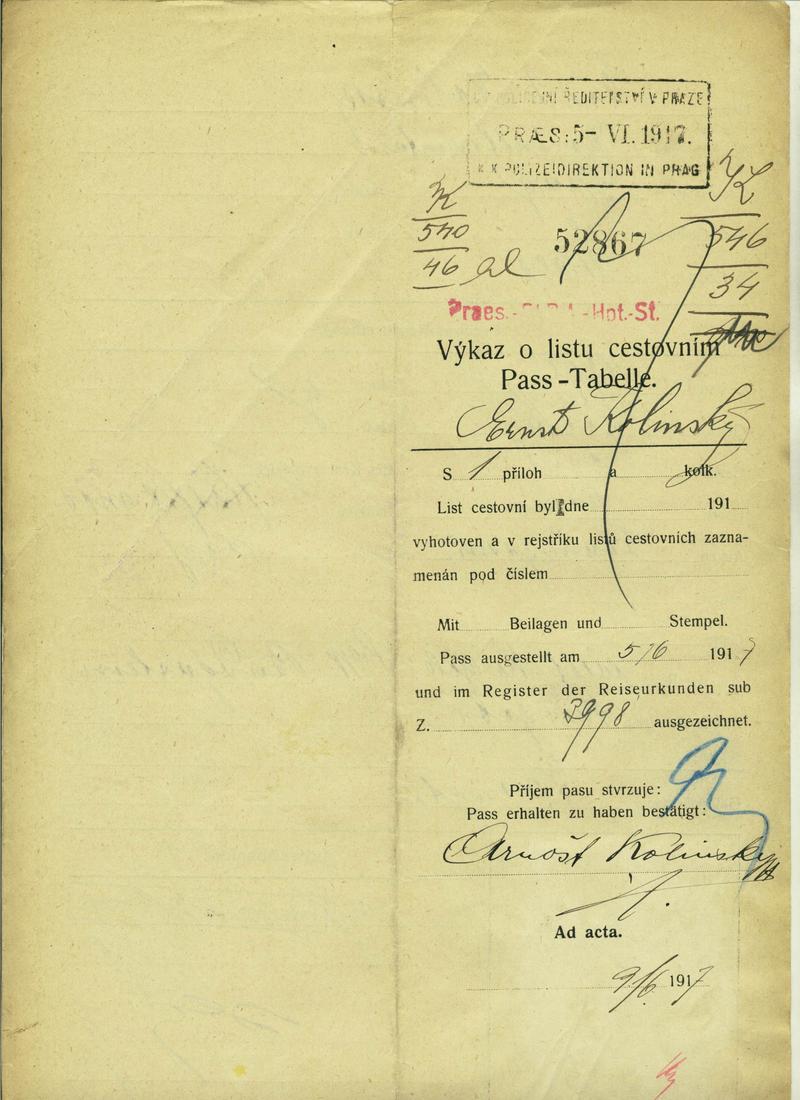 ŘEDITELSTVÍ V PRAZE
PRÆS: 5- VI. 1917.
K K POLIZEIDIREKTION IN PRAG
K
540
46
52867
K
546
34
Praes.- -Hpt.-St.
Výkaz o listu cestovním
Pass-Tabelle.
Ernst Kolinský
S 1 příloh a kolk.
List cestovní byl dne 191
vyhotoven a v rejstříku listů cestovních zazna-
menán pod číslem
Mit Beilagen und Stempel.
Pass ausgestellt am 5/6 1917
und im Register der Reiseurkunden sub
Z. 3998 ausgezeichnet.
Příjem pasu stvrzuje:
Pass erhalten zu haben bestätigt:
Arnošt Kolinský
Ad acta.
9/6 1917